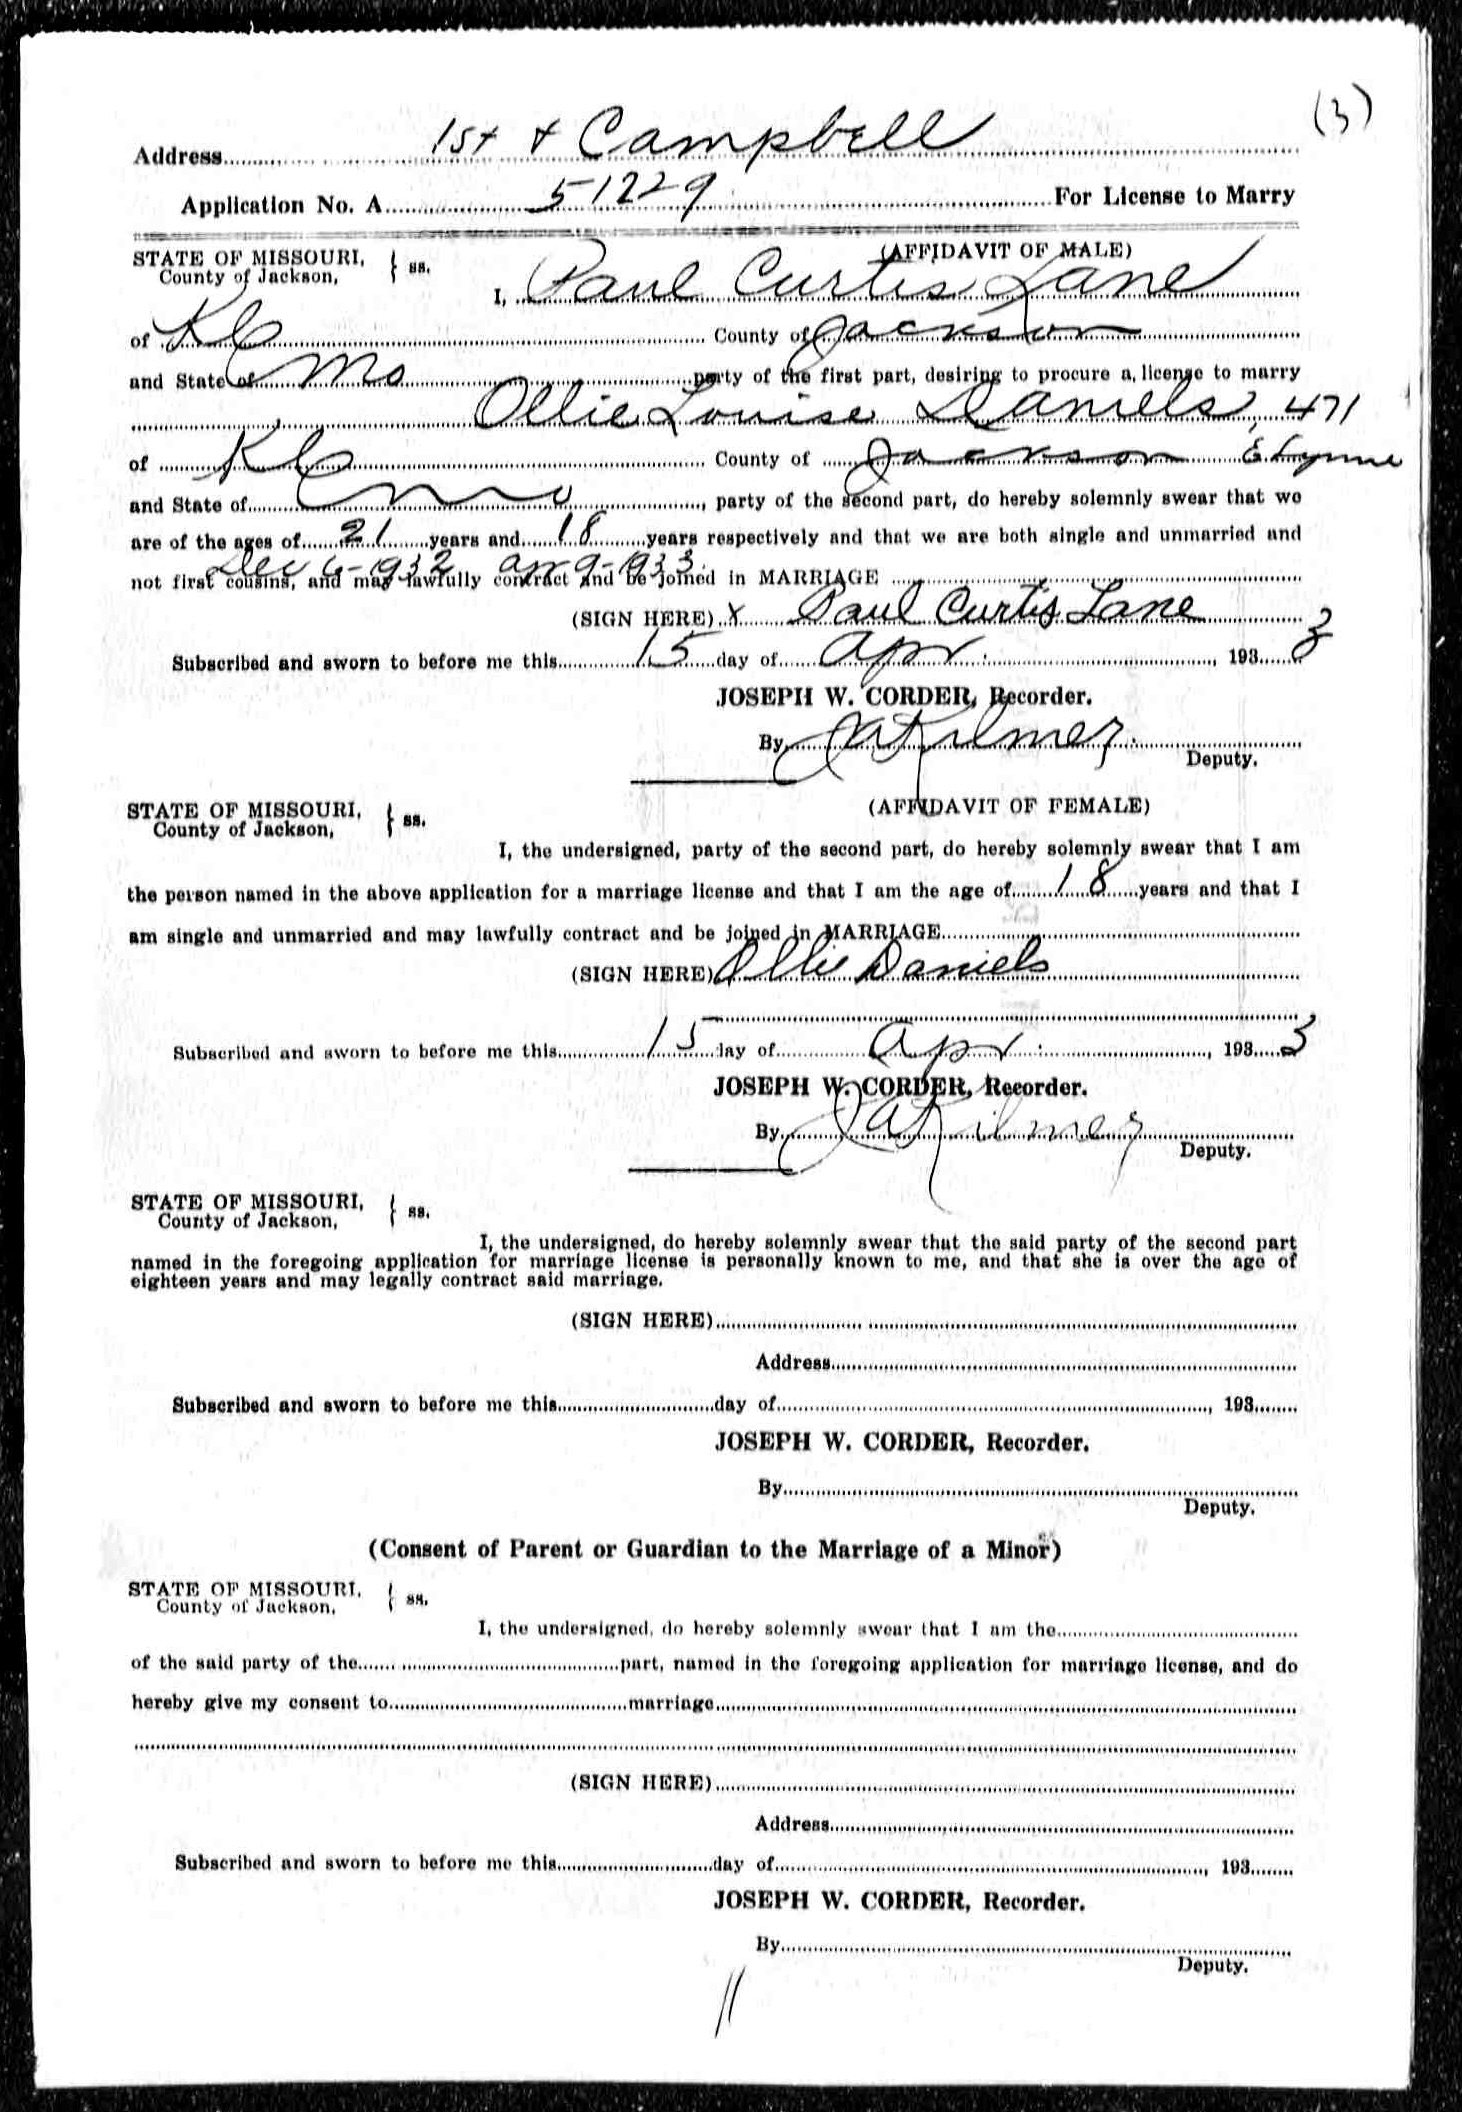 (3)
Address 1st & Campbell
Application No. A 51229 For License to Marry
STATE OF MISSOURI, } ss. (AFFIDAVIT OF MALE)
County of Jackson,
I, Paul Curtis Lane
of K C County of Jackson
and State of Mo party of the first part, desiring to procure a license to marry
Ollie Louise Daniels, 471
of K C County of Jackson E Lynne
and State of Mo, party of the second part, do hereby solemnly swear that we
are of the ages of 21 years and 18 years respectively and that we are both single and unmarried and
Dec 6-1932 apr 9-1933
not first cousins, and may lawfully contract and be joined in MARRIAGE
(SIGN HERE) x Paul Curtis Lane
Subscribed and sworn to before me this 15 day of Apr., 1933
JOSEPH W. CORDER, Recorder.
By J A Kilmer
Deputy.
STATE OF MISSOURI, } ss. (AFFIDAVIT OF FEMALE)
County of Jackson,
I, the undersigned, party of the second part, do hereby solemnly swear that I am
the person named in the above application for a marriage license and that I am the age of 18 years and that I
am single and unmarried and may lawfully contract and be joined in MARRIAGE
(SIGN HERE) Ollie Daniels
Subscribed and sworn to before me this 15 day of Apr., 1933
JOSEPH W. CORDER, Recorder.
By J A Kilmer
Deputy.
STATE OF MISSOURI, } ss.
County of Jackson,
I, the undersigned, do hereby solemnly swear that the said party of the second part
named in the foregoing application for marriage license is personally known to me, and that she is over the age of
eighteen years and may legally contract said marriage.
(SIGN HERE)
Address
Subscribed and sworn to before me this day of , 193
JOSEPH W. CORDER, Recorder.
By
Deputy.
(Consent of Parent or Guardian to the Marriage of a Minor)
STATE OF MISSOURI, } ss.
County of Jackson,
I, the undersigned, do hereby solemnly swear that I am the
of the said party of the part, named in the foregoing application for marriage license, and do
hereby give my consent to marriage
(SIGN HERE)
Address
Subscribed and sworn to before me this day of , 193
JOSEPH W. CORDER, Recorder.
By
Deputy.